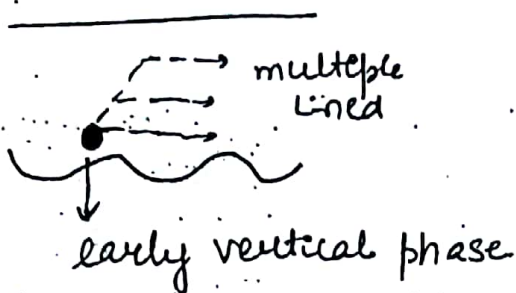 multeple
Lined
early vertical phase